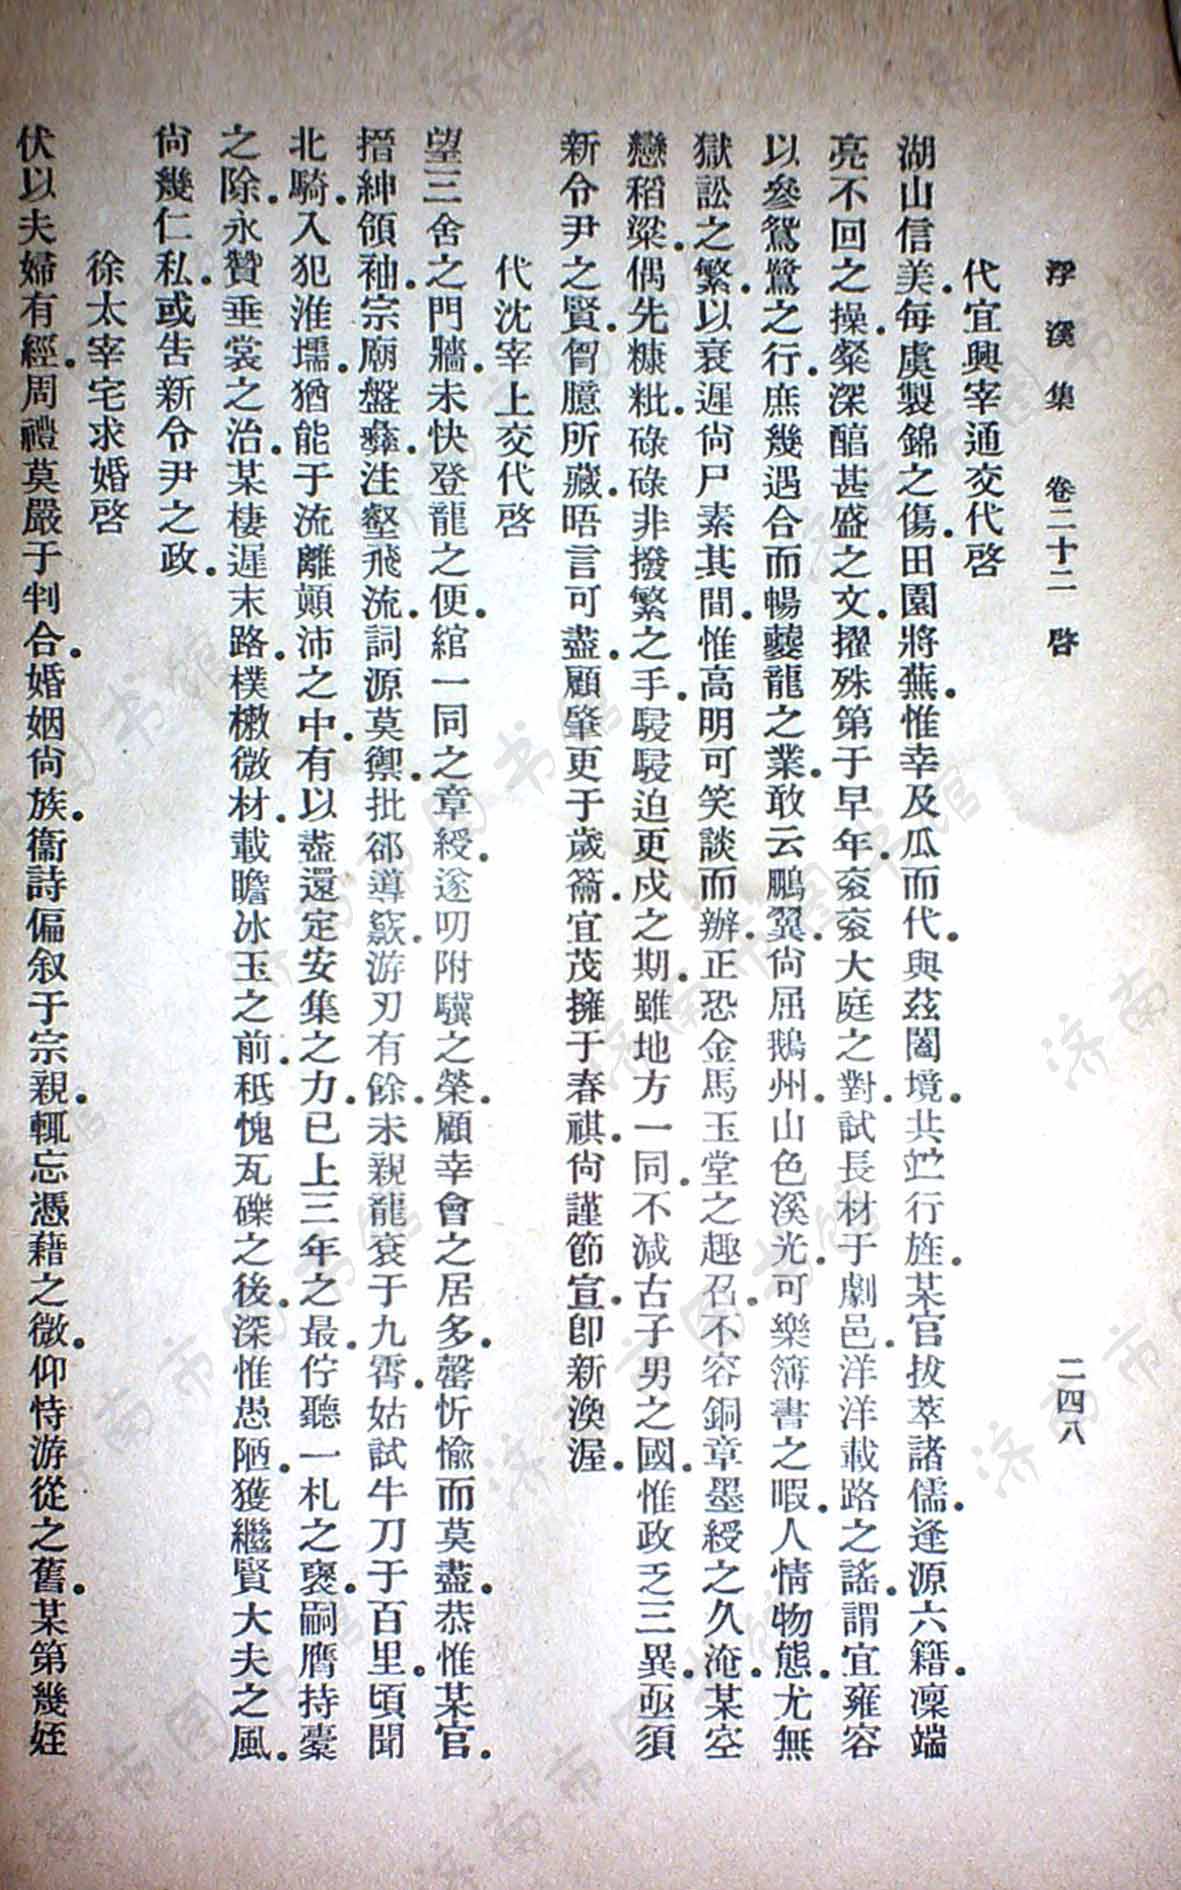 浮溪集 卷二十二 啓 二四八
代宜興宰通交代啓
湖山信美。每虞製錦之傷。田園將蕪。惟幸及瓜而代。與茲闔境。共竚行旌。某官拔萃諸儒。逢源六籍。凜端
亮不回之操。粲深醇甚盛之文。擢殊第于早年。袞袞大庭之對。試長材于劇邑。洋洋載路之謠。謂宜雍容
以參鴛鷺之行。庶幾遇合而暢夔龍之業。敢云鵬翼。尙屈鵝州。山色溪光。可樂簿書之暇。人情物態。尤無
獄訟之繁。以衰遲尙尸素其間。惟高明可笑談而辦。正恐金馬玉堂之趣召。不容銅章墨綬之久淹。某空
戀稻粱。偶先糠粃。碌碌非撥繁之手。駸駸迫更戍之期。雖地方一同。不減古子男之國。惟政乏三異。亟須
新令尹之賢。胷臆所藏。晤言可盡。顧肇更于歲籥。宜茂擁于春祺。尙謹節宣。卽新渙渥。
代沈宰上交代啓
望三舍之門牆。未快登龍之便。綰一同之章綬。遂叨附驥之榮。顧幸會之居多。罄忻愉而莫盡。恭惟某官。
搢紳領袖。宗廟盤彝。注壑飛流。詞源莫禦。批郤導窾。游刃有餘。未親龍袞于九霄。姑試牛刀于百里。頃聞
北騎。入犯淮壖。猶能于流離顚沛之中。有以盡還定安集之力。已上三年之最。佇聽一札之襃。嗣膺持橐
之除。永贊垂裳之治。某棲遲末路。樸樕微材。載瞻冰玉之前。秖愧瓦礫之後。深惟愚陋。獲繼賢大夫之風。
尙幾仁私。或告新令尹之政。
徐太宰宅求婚啓
伏以夫婦有經。周禮莫嚴于判合。婚姻尙族。衞詩偏叙于宗親。輒忘憑藉之微。仰恃游從之舊。某第幾姪
济南市图书馆